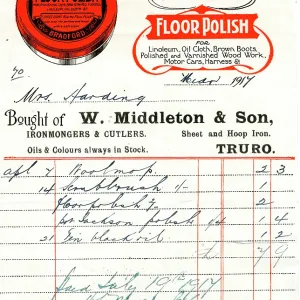 BRADFORD
FLOOR POLISH
FOR
Linoleum, Oil Cloth, Brown Boots,
Polished and Varnished Wood Work,
Motor Cars, Harness &
1917
Mrs Harding
Bought of W. Middleton & Son,
IRONMONGERS & CUTLERS. Sheet and Hoop Iron.
Oils & Colours always in Stock. TRURO.
apl 7 Woolmop 2 3
14 Scrubbrush 1/- 1
floor polish 2
Jackson polish 1 4
21 Tin black oil 1 2
7 9
July 19th 1917